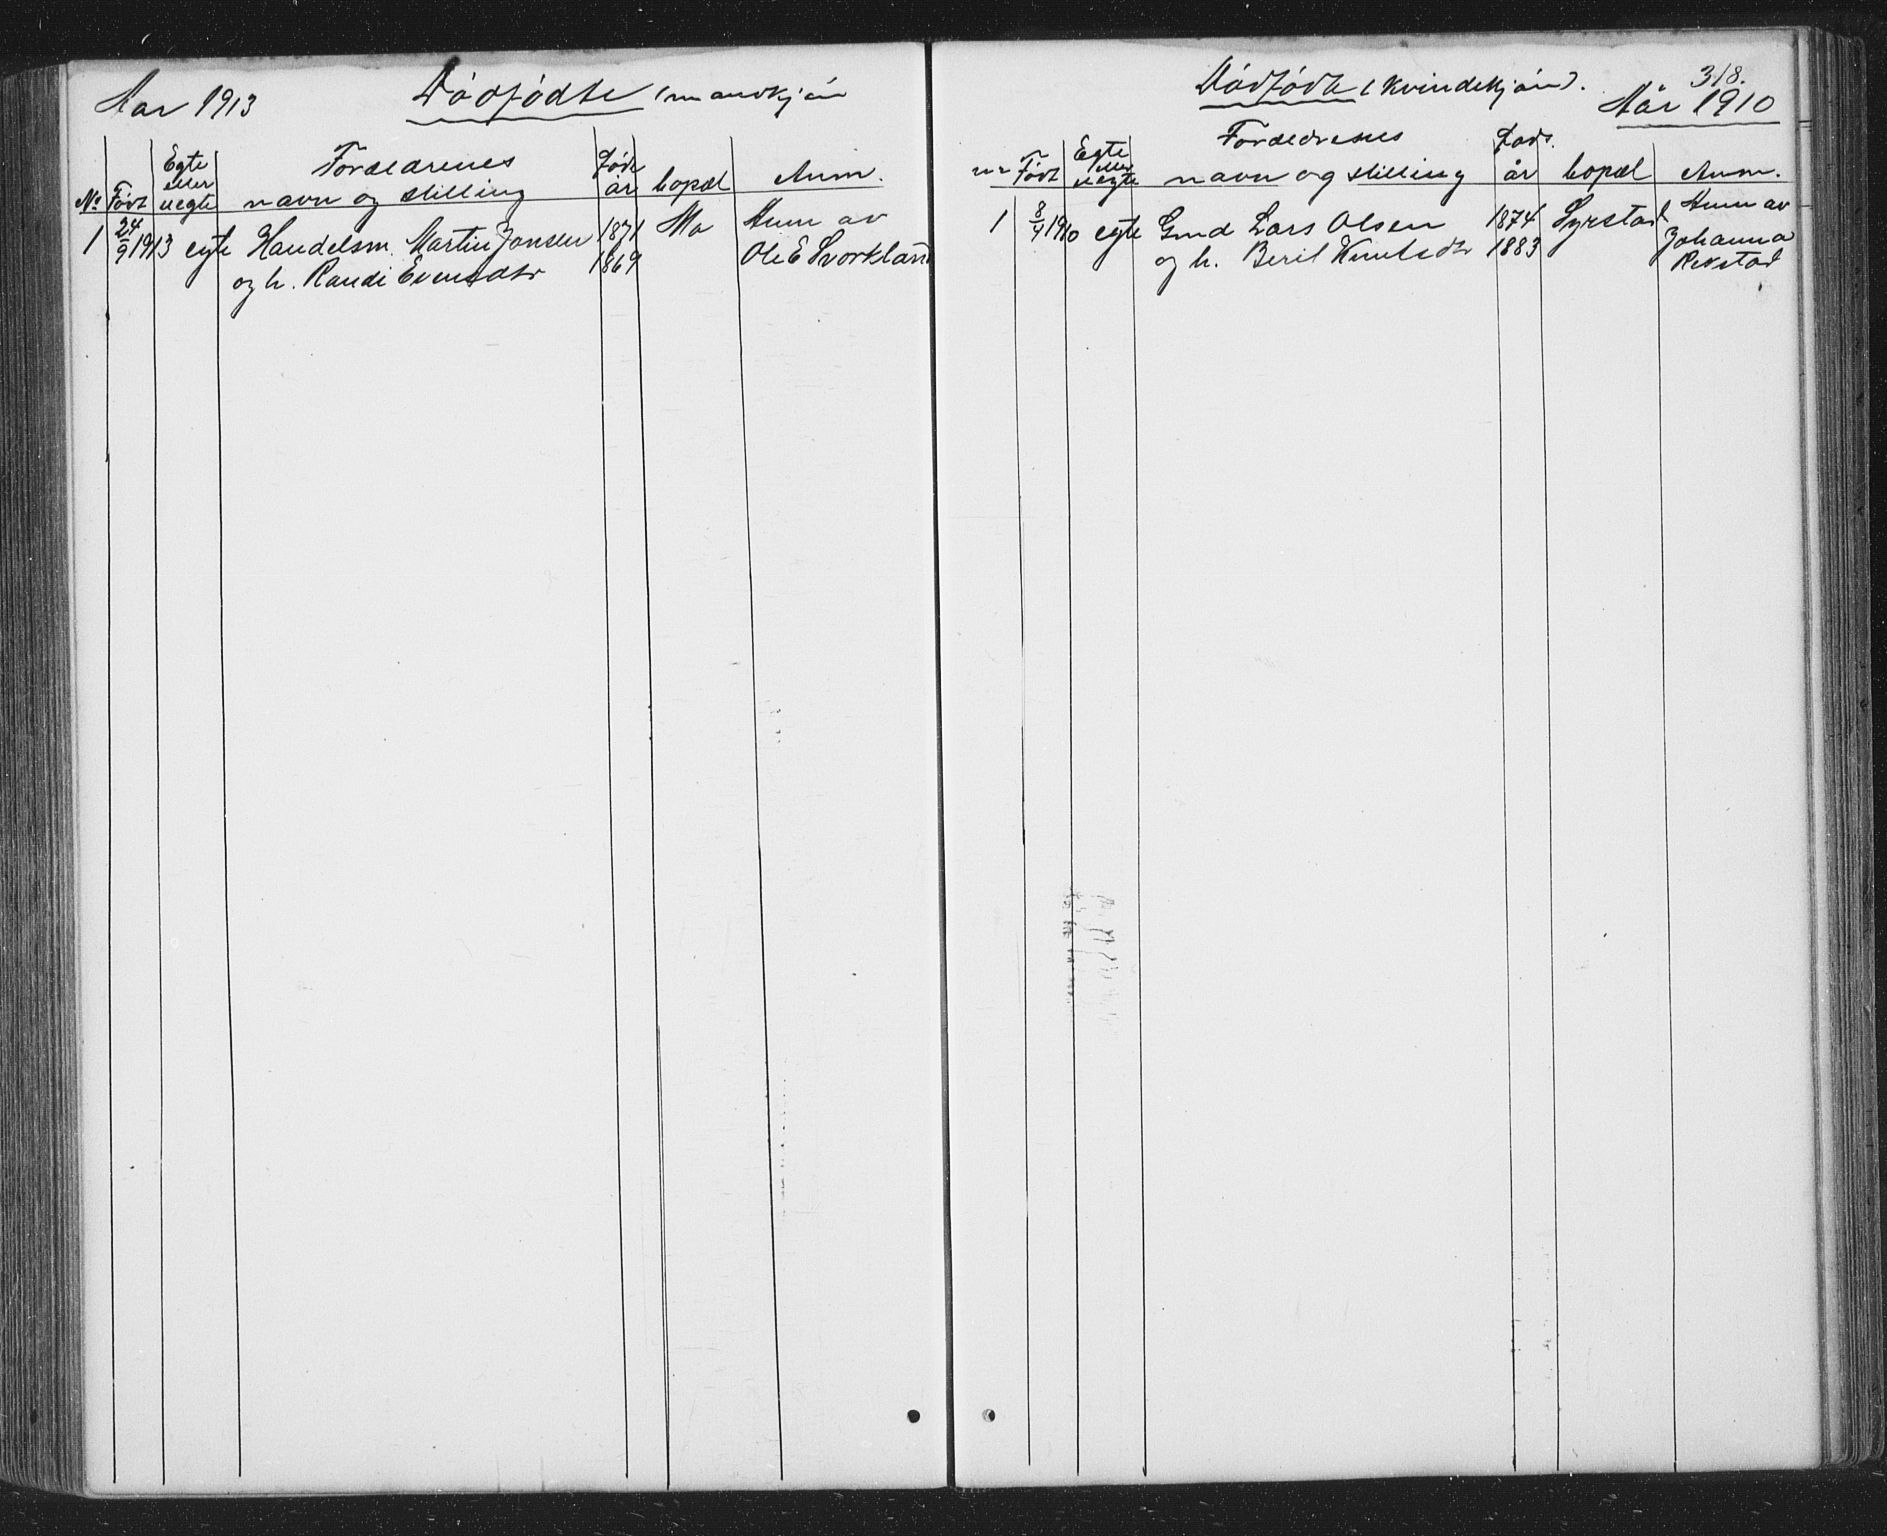 Aar 1913
Dödfödte (mandkjön
No
Födt
Egte
eller
uegte
Forældrenes
navn og stilling
Föds
år
bopæl
Anm.
1
24/9 1913
egte
Handelsm. Martin Jonsen
og h. Randi Evensdtr
1871
1869
Mo
Anm av
Ole E Svorkland
318.
Dödfödte (kvindekjön).
Aår 1910
nr
Födt
Egte
eller
uegte
Forældrenes
navn og stilling
Föds.
år
bopæl
Anm.
1
8/9 1910
egte
Gmd Lars Olsen
og h. Berit Knutsdtr
1874
1883
Syrstad
Anm av
Johanna
Rekstad